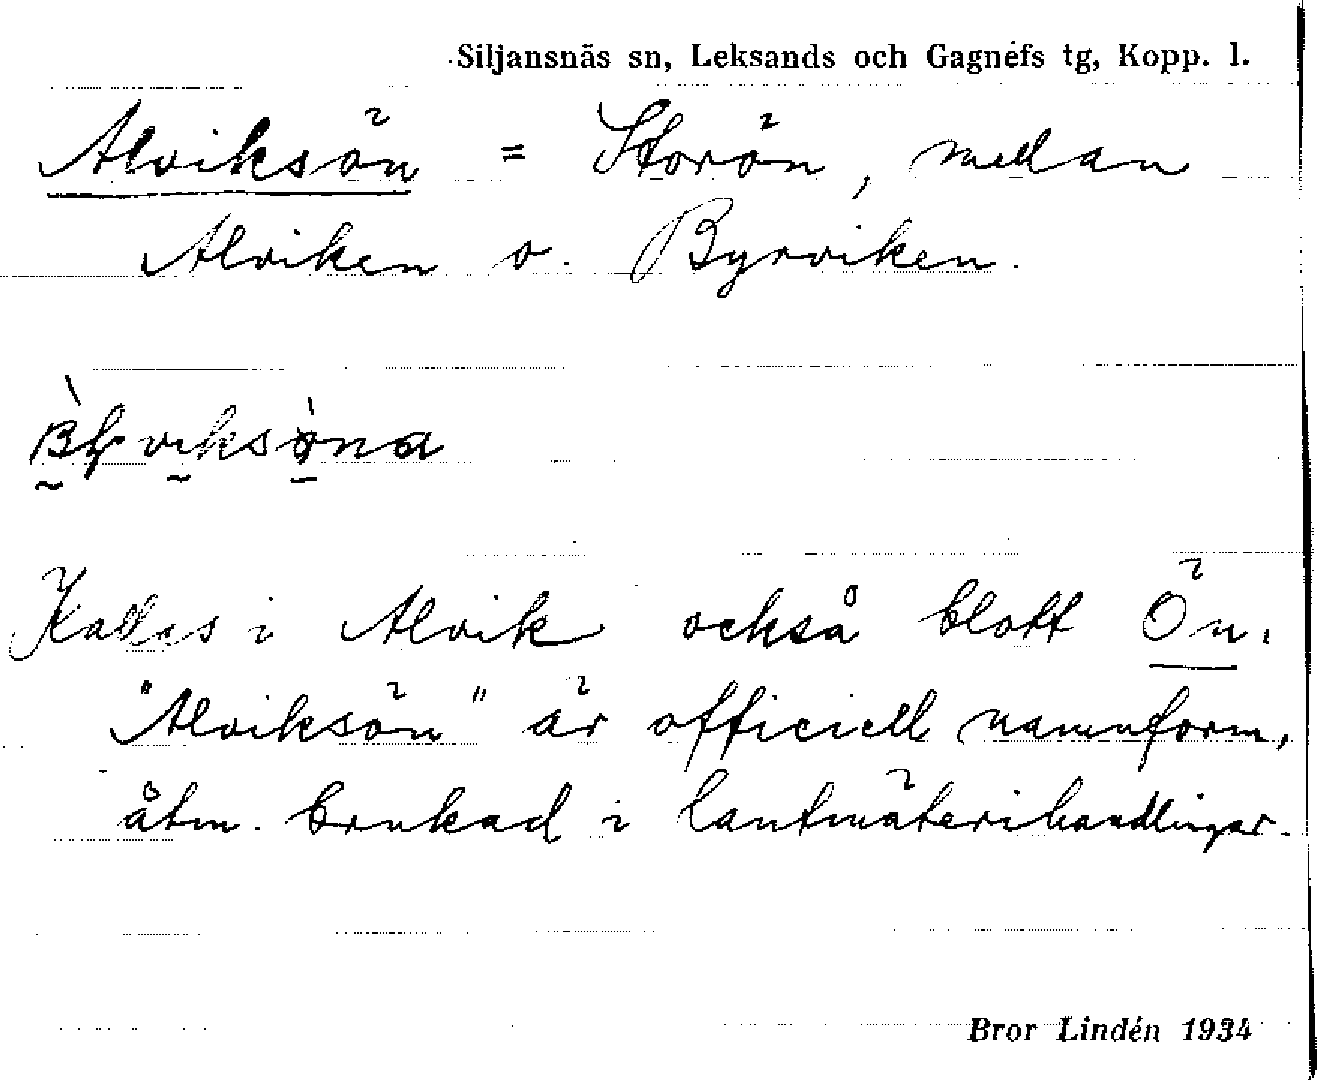 Siljansnäs sn, Leksands och Gagnefs tg, Kopp. l.
Alviksön = Storön, mellan
Alviken o. Byrviken.
Kallas i Alvik också blott Ön.
"Alviksön" är officiell namnform,
åtm. brukad i lantmäterihandlingar.
Bror Lindén 1934